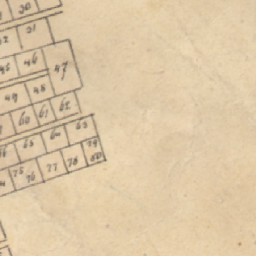 30
32 31
45 46 47
49 48
60 61 62
65 64 63
75 76 77 78 79 80